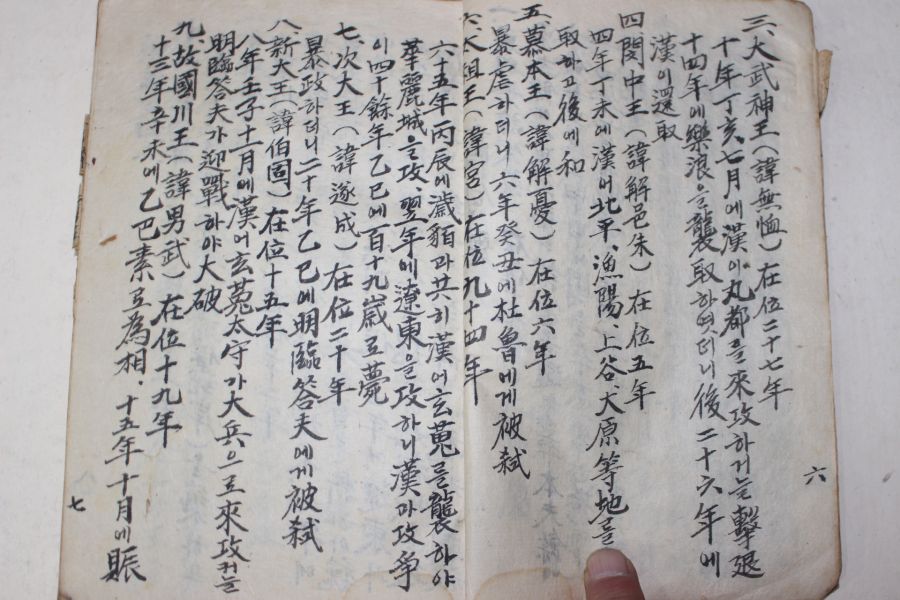 三、大武神王(諱無恤) 在位二十七年
十年丁亥七月에漢이丸都를來攻하거늘擊退
十四年에樂浪을襲取하엿더니後二十六年에
漢이還取
四 閔中王(諱解邑朱) 在位五年
四年丁未에漢어北平、漁陽、上谷、犬原等地를
取하고後에和
五、慕本王(諱解憂) 在位六年
暴虐하더니六年癸丑에杜魯에게被弑
六、太祖王(諱宮) 在位九十四年
六十五年丙辰에濊貊과共히漢어玄菟를襲하야
華麗城을攻、翌年에遼東을攻하니漢과攻爭
이四十餘年乙巳에百十九歲로薨
七、次大王(諱遂成) 在位二十年
暴政하더니二十年乙巳에明臨答夫에게被弑
八、新大王(諱伯固) 在位十五年
八年壬子十一月에漢어玄菟太守가大兵으로來攻커늘
明臨答夫가迎戰하야大破
九、故國川王(諱男武) 在位十九年
十三年辛未에乙巴素로為相、十五年十月에賑
六
七